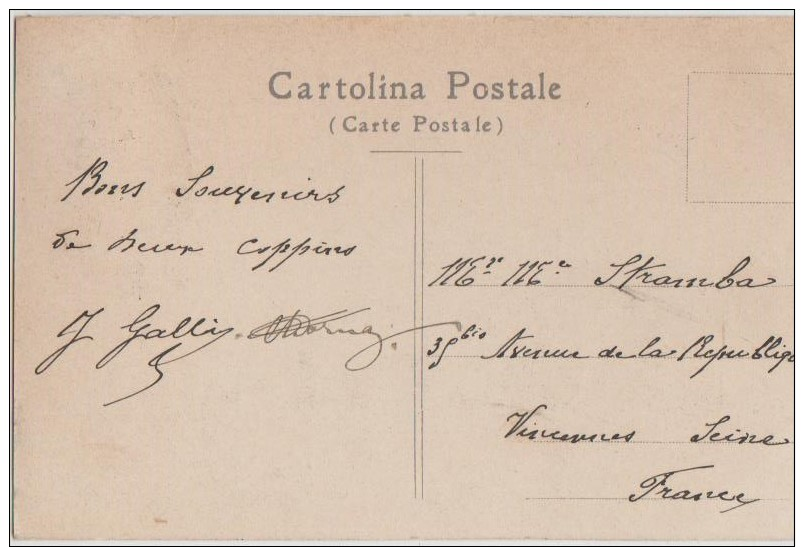 Cartolina Postale
(Carte Postale)
Bons Souvenirs
de deux coppins
J Galli
Mr Me Stramba
35 bis Avenue de la Republiq
Vincennes Seine
France